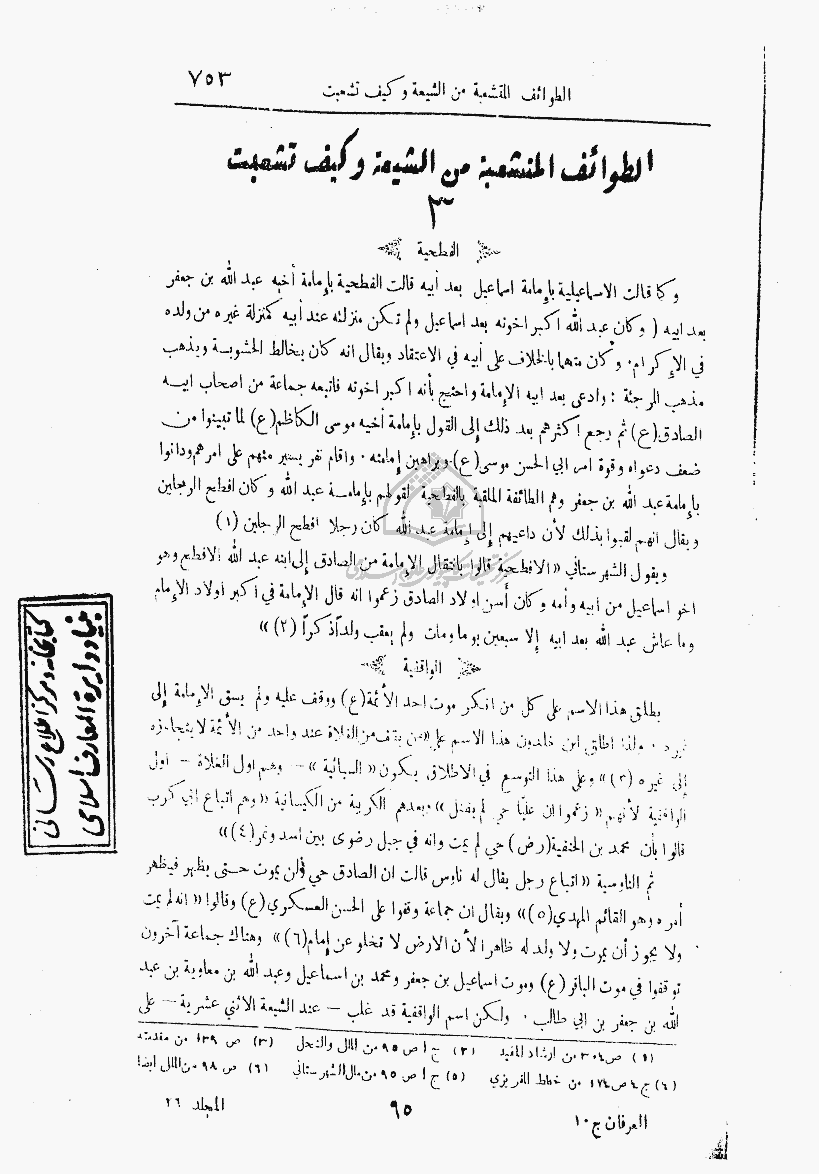 الطوائف المتشعبة من الشيعة وكيف تشعبت
٧٥٣
الطوائف المتشعبة من الشيعة وكيف تشعبت
٣
الفطحية
وكما قالت الاسماعيلية بإمامة اسماعيل بعد أبيه قالت الفطحية بإمامة أخيه عبد الله بن جعفر
بعد ابيه ( وكان عبد الله اكبر اخوته بعد اسماعيل ولم تكن منزلته عند أبيه كمنزلة غيره من ولده
في الإكرام. وكان متهما بالخلاف على أبيه في الاعتقاد ويقال انه كان يخالط الحشوية ويذهب
مذهب المرجئة : وادعى بعد ابيه الإمامة واحتج بأنه اكبر اخوته فاتبعه جماعة من اصحاب ابيه
الصادق(ع) ثم رجع اكثرهم بعد ذلك إلى القول بإمامة أخيه موسى الكاظم(ع) لما تبينوا من
ضعف دعواه وقوة امر ابي الحسن موسى(ع) وبراهين إمامته . واقام نفر يسير منهم على امرهم ودانوا
بإمامة عبد الله بن جعفر وهم الطائفة الملقبة بالفطحية لقولهم بإمامة عبد الله وكان افطح الرجلين
ويقال انهم لقبوا بذلك لأن داعيهم إلى إمامة عبد الله كان رجلا افطح الرجلين (١)
ويقول الشهرستاني «الافطحية قالوا بانتقال الإمامة من الصادق إلى ابنه عبد الله الافطح وهو
اخو اسماعيل من أبيه وأمه وكان أسن اولاد الصادق زعموا انه قال الإمامة في اكبر اولاد الإمام
وما عاش عبد الله بعد ابيه إلا سبعين يوما ومات ولم يعقب ولداً ذكراً (٢) »
الواقفية
يطلق هذا الاسم على كل من انكر موت احد الأئمة(ع) ووقف عليه ولم يسق الإمامة إلى
غيره . ولذا اطلق ابن خلدون هذا الاسم على «من يقف من الغلاة عند واحد من الأئمة لا يتجاوزه
إلى غيره (٣) » وعلى هذا التوسع في الاطلاق يكون « السبائية » – وهم اول الغلاة – اول
الواقفية لأنهم « زعموا ان عليا حي لم يقتل » وبعدهم الكربية من الكيسانية «وهم اتباع ابي كرب
قالوا بأن محمد بن الحنفية(رض) حي لم يمت وانه في جبل رضوى بين أسد ونمر(٤) »
ثم الناوسية « اتباع رجل يقال له ناوس قالت ان الصادق حي ولن يموت حتى يظهر فيظهر
أمره وهو القائم المهدي(٥) » ويقال ان جماعة وقفوا على الحسن العسكري(ع) وقالوا « انه لم يمت
ولا يجوز أن يموت ولا ولد له ظاهرا لأن الارض لا تخلو عن إمام(٦) » وهناك جماعة آخرون
توقفوا في موت الباقر(ع) وموت اسماعيل بن جعفر ومحمد بن اسماعيل وعبد الله بن معاوية بن عبد
الله بن جعفر بن ابي طالب . ولكن اسم الواقفية قد غلب – عند الشيعة الاثني عشرية – على
(١) ص ٣٠٤ من ارشاد المفيد (٢) ج ١ ص ٩٥ من الملل والنحل (٣) ص ١٣٩ من مقدمته
(٤) ج ٤ ص ١٧٤ من خطط المقريزي (٥) ج ١ ص ٩٥ من ملل الشهرستاني (٦) ص ٩٨ من الملل ايضا
العرفان ج ١٠
٩٥
المجلد ٢٦
كتابخانه ومركز اطلاع رسانى
بنياد دايرة المعارف اسلامى